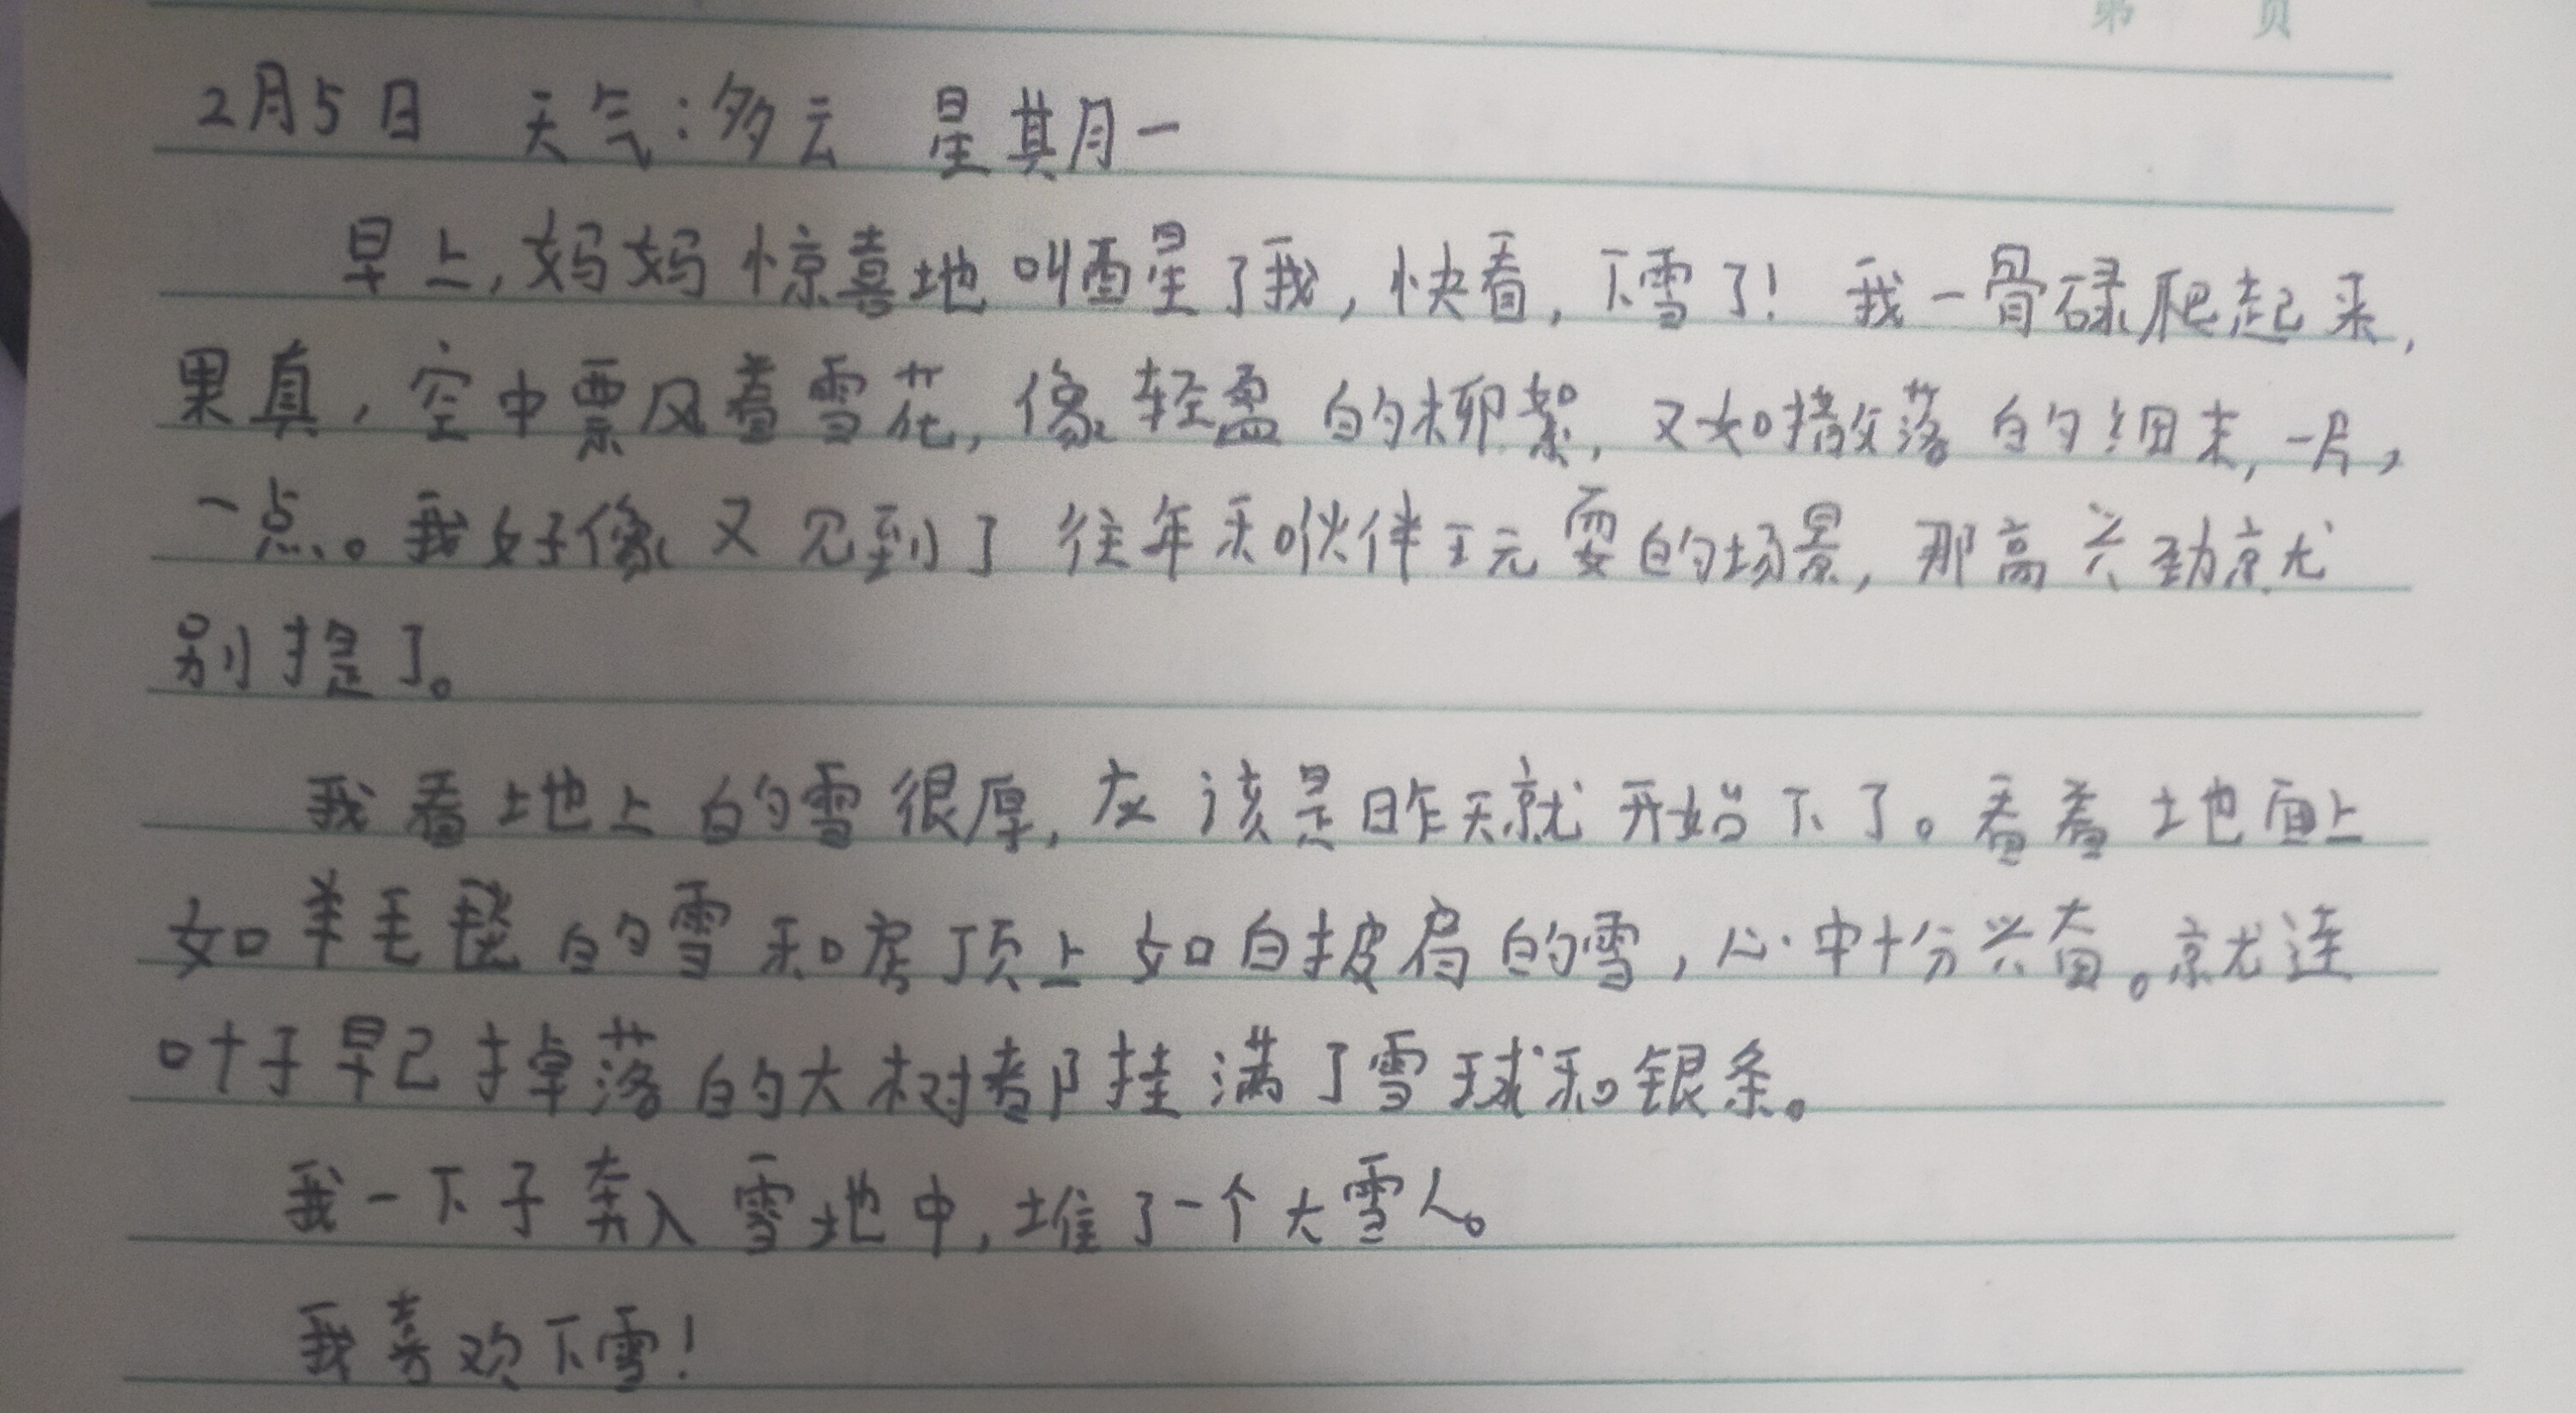 第 页
2月5日 天气:多云 星期一
早上,妈妈惊喜地叫醒了我,快看,下雪了!我一骨碌爬起来,
果真,空中飘着雪花,像轻盈的柳絮,又如撒落的细末,一片,
一点。我好像又见到了往年和伙伴玩耍的场景,那高兴劲就
别提了。
我看地上的雪很厚,应该是昨天就开始下了。看着地面上
如羊毛毯的雪和房顶上如白披肩的雪,心中十分兴奋。就连
叶子早已掉落的大树都挂满了雪球和银条。
我一下子奔入雪地中,堆了一个大雪人。
我喜欢下雪!